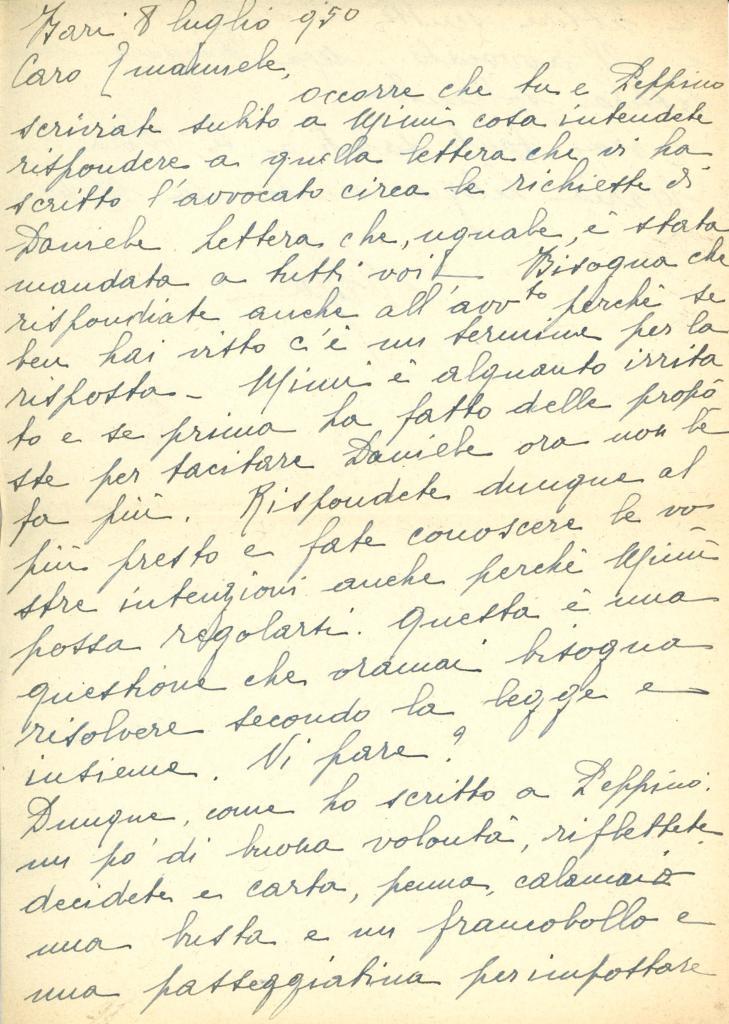 Bari 8 luglio 950
Caro Emanuele,
occorre che tu e Peppino
scriviate subito a Mimì cosa intendete
rispondere a quella lettera che vi ha
scritto l'avvocato circa le richieste di
Daniele lettera che, uguale, è stata
mandata a tutti voi! Bisogna che
rispondiate anche all'avvto perchè se
ben hai visto c'è un termine per la
risposta - Mimì è alquanto irrita
to e se prima ha fatto delle propo
ste per tacitare Daniele ora non le
fa più. Rispondete dunque al
più presto e fate conoscere le vo
stre intenzioni anche perchè Mimì
possa regolarsi. Questa è una
questione che oramai bisogna
risolvere secondo la legge e
insieme. Vi pare?
Dunque, come ho scritto a Peppino.
un po' di buona volontà, riflettete,
decidete e carta, penna, calamaio
una busta e un francobollo e
una passeggiatina per impostare